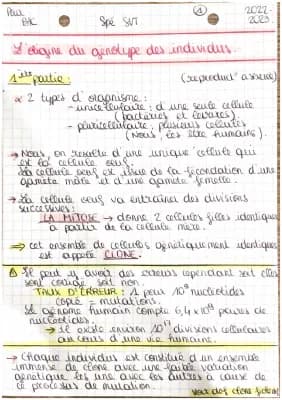 Pau
BAC
Spé SVT
①
2022-
2023.
L'origine du génotype des individus.
1ère partie:
(reproduct° asexuée)
2 types d'organisme:
- unicellulaire: d'une seule cellule
(bactéries et levures).
- pluricellulaire: plusieurs cellules
(Nous, les être humains).
→ Nous, on résulte d'une unique cellule qui
est la cellule œuf.
La cellule œuf est issue de la fécondation d'une
gamète mâle et d'une gamète femelle.
→ La cellule œuf va entraîner des divisions
successives:
LA MITOSE → donne 2 cellules filles identiques
à partir de la cellule mère.
⇒ cet ensemble de cellules génétiquement identiques
est appelé CLONE.
Il peut y avoir des erreurs cependant soit elles
sont corrigé soit non.
TAUX D'ERREUR: 1 pour 10⁹ nucléotides
copié = mutations.
Le génome humain compte 6,4 × 10⁹ paires de
nucléotides.
↳ Il existe environ 10¹⁷ divisions cellulaires
au cours d'une vie humaine.
→ Chaque individus est constitué d'un ensemble
immense de clone avec une faible variation
génétique les une avec les autres à cause de
ce processus de mutation.
voir def clone